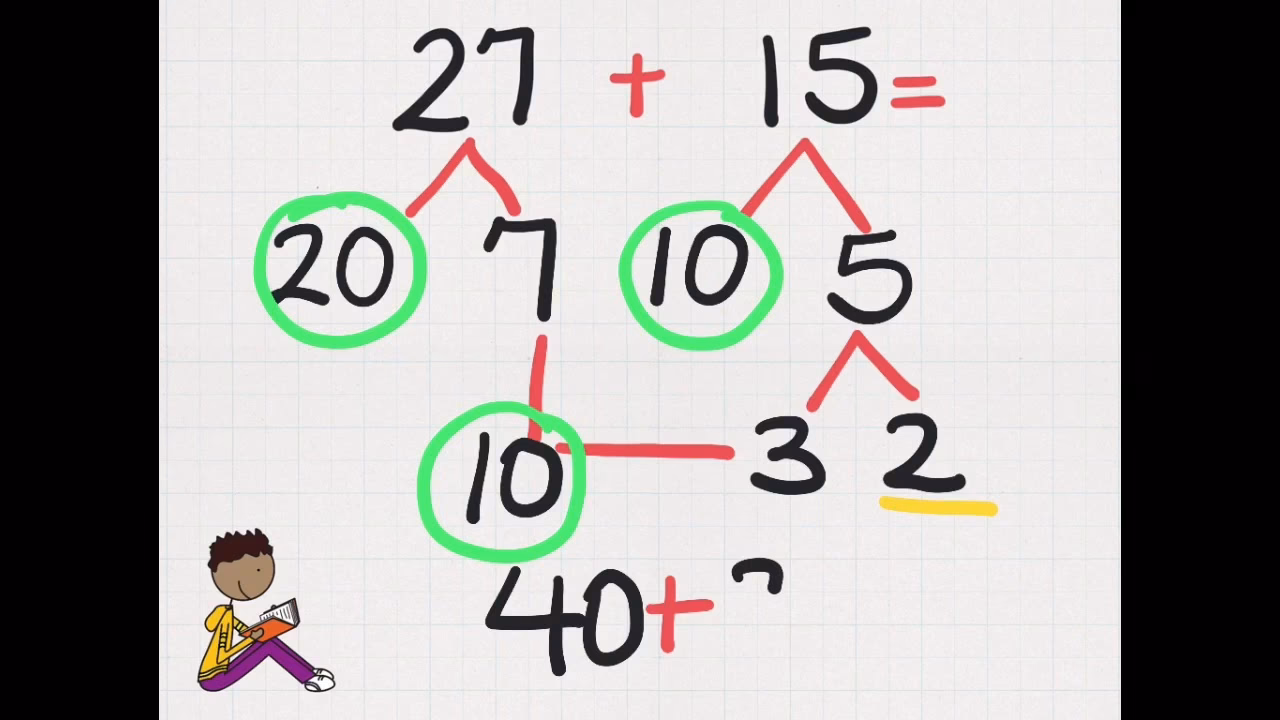 27 + 15 =
20 7 10 5
10 3 2
40 +